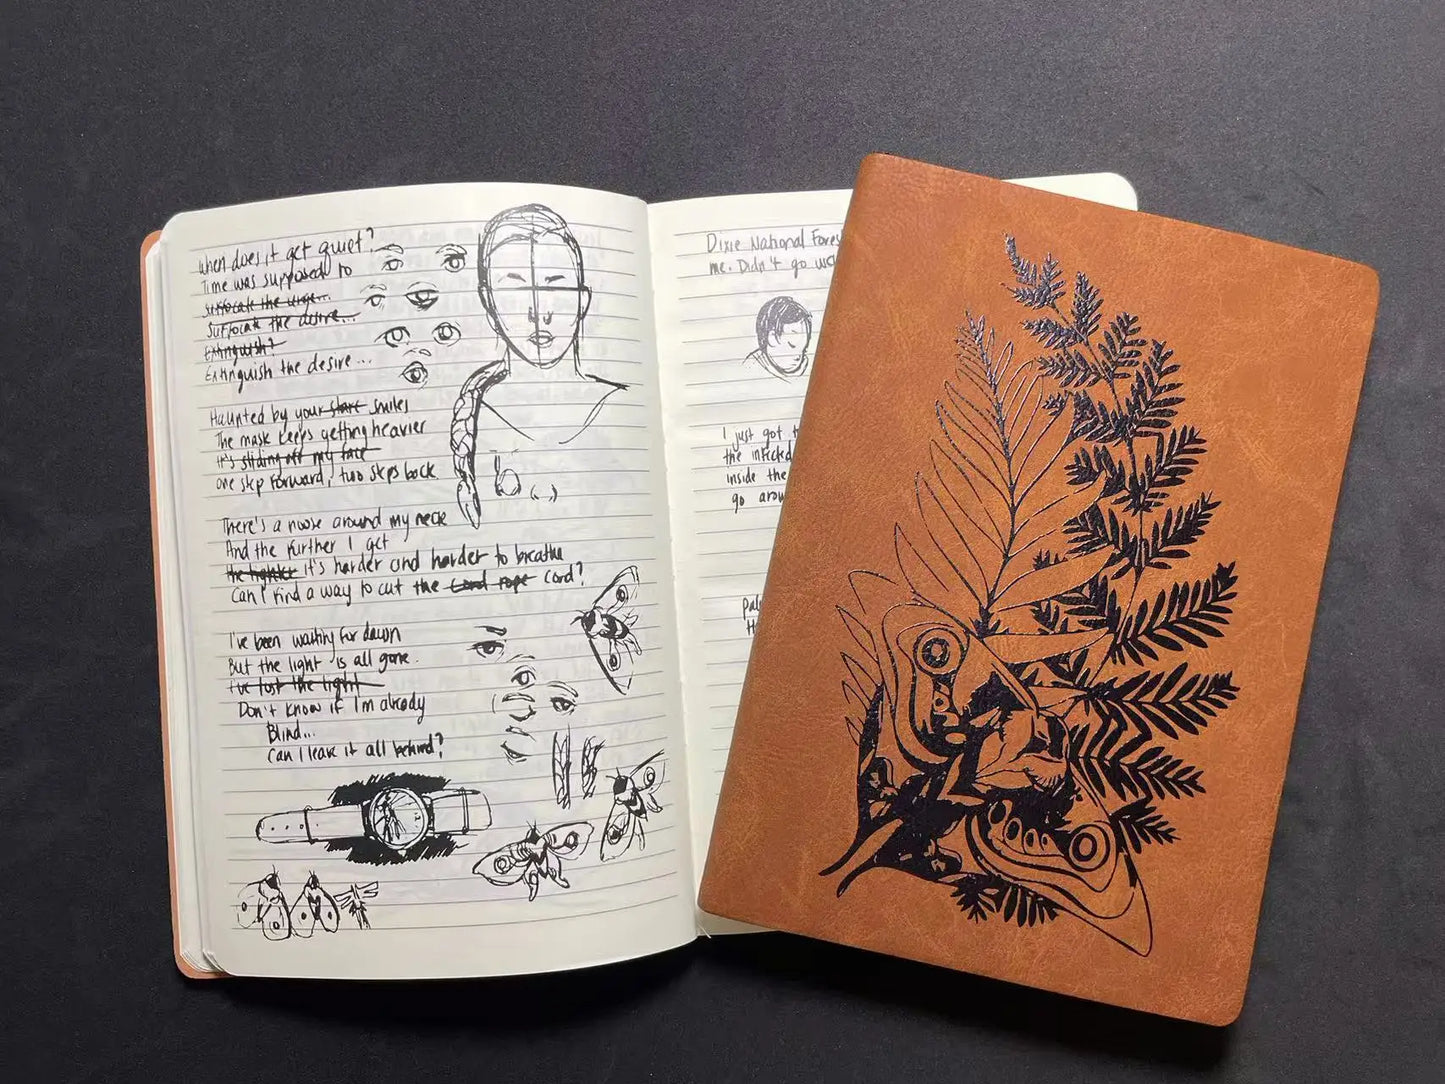 When does it get quiet?
Time was supposed to
Suffocate the urge...
Suffocate the desire...
Extinguish?
Extinguish the desire...
Haunted by your stare smiles
The mask keeps getting heavier
it's sliding off my face
one step forward, two steps back
There's a noose around my neck
And the further I get
the tighter it's harder and harder to breathe
Can I find a way to cut the cord rope cord?
I've been waiting for dawn
But the light is all gone.
I've lost the light
Don't know if I'm already
Blind...
Can I leave it all behind?
Dixie National Fores
me. Didn't go
I just got
the infected
inside the
go arou